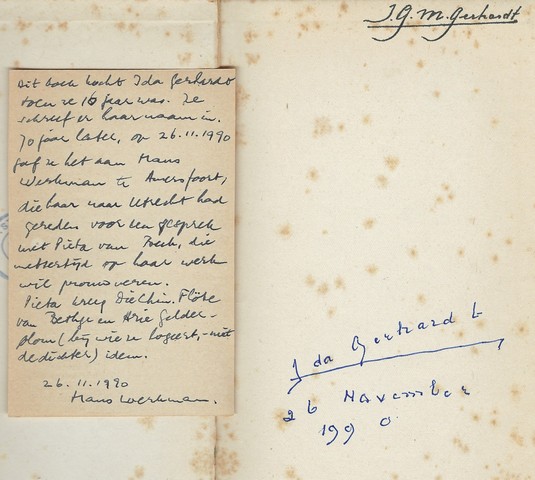 J.G.M. Gerhardt
Dit boek kocht Ida Gerhardt
toen ze 16 jaar was. Ze
schreef er haar naam in.
70 jaar later, op 26.11.1990
gaf ze het aan Hans
Werkman te Amersfoort,
die haar naar Utrecht had
gereden voor een gesprek
met Pieta van Beek, die
mettertijd op haar werk
wil promoveren.
Pieta kreeg Die Chin. Flöte
van Bethge en Arie Gelder-
blom (bij wie ze logeert, - niet
de dichter) idem.
26.11.1990
Hans Werkman.
Ida Gerhardt
26 November
1990